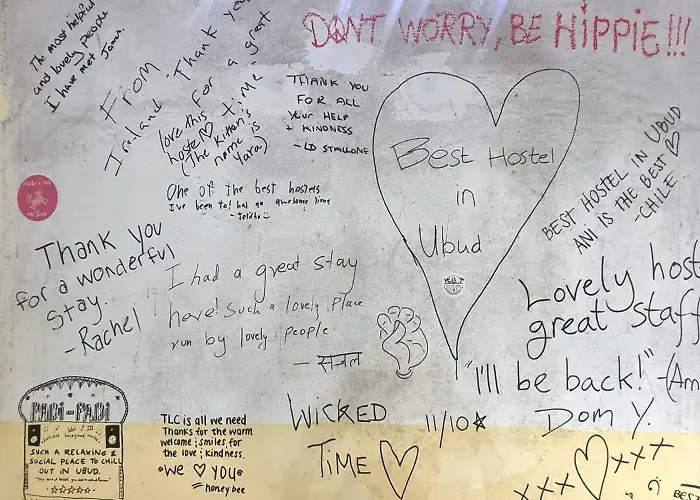 The most helpful
and lovely people
I have met
From
Ireland
Thank you
for a great
time.
love this
hostel♡
(The kitten's
name is
Yara)
THANK YOU
FOR ALL
YOUR HELP
+ KINDNESS
DON'T WORRY, BE HiPPiE!!!
Best Hostel
in
Ubud
BEST HOSTEL IN UBUD
ANI IS THE BEST ♡
-CHILE.
One of the best hostels
I've been to! had an awesome time
Thank you
for a wonderful
stay.
-Rachel
I had a great stay
here! Such a lovely place
run by lovely people.
Lovely host
great staff
"I'll be back!"
Dom Y.
PADI-PADI
SUCH A RELAXING &
SOCIAL PLACE TO CHILL
OUT IN UBUD.
TLC is all we need
Thanks for the warm
welcome; smiles, for
the love; kindness.
we ♡ you
honey bee
WICKED
TIME ♡
11/10
xxx ♡ xxx